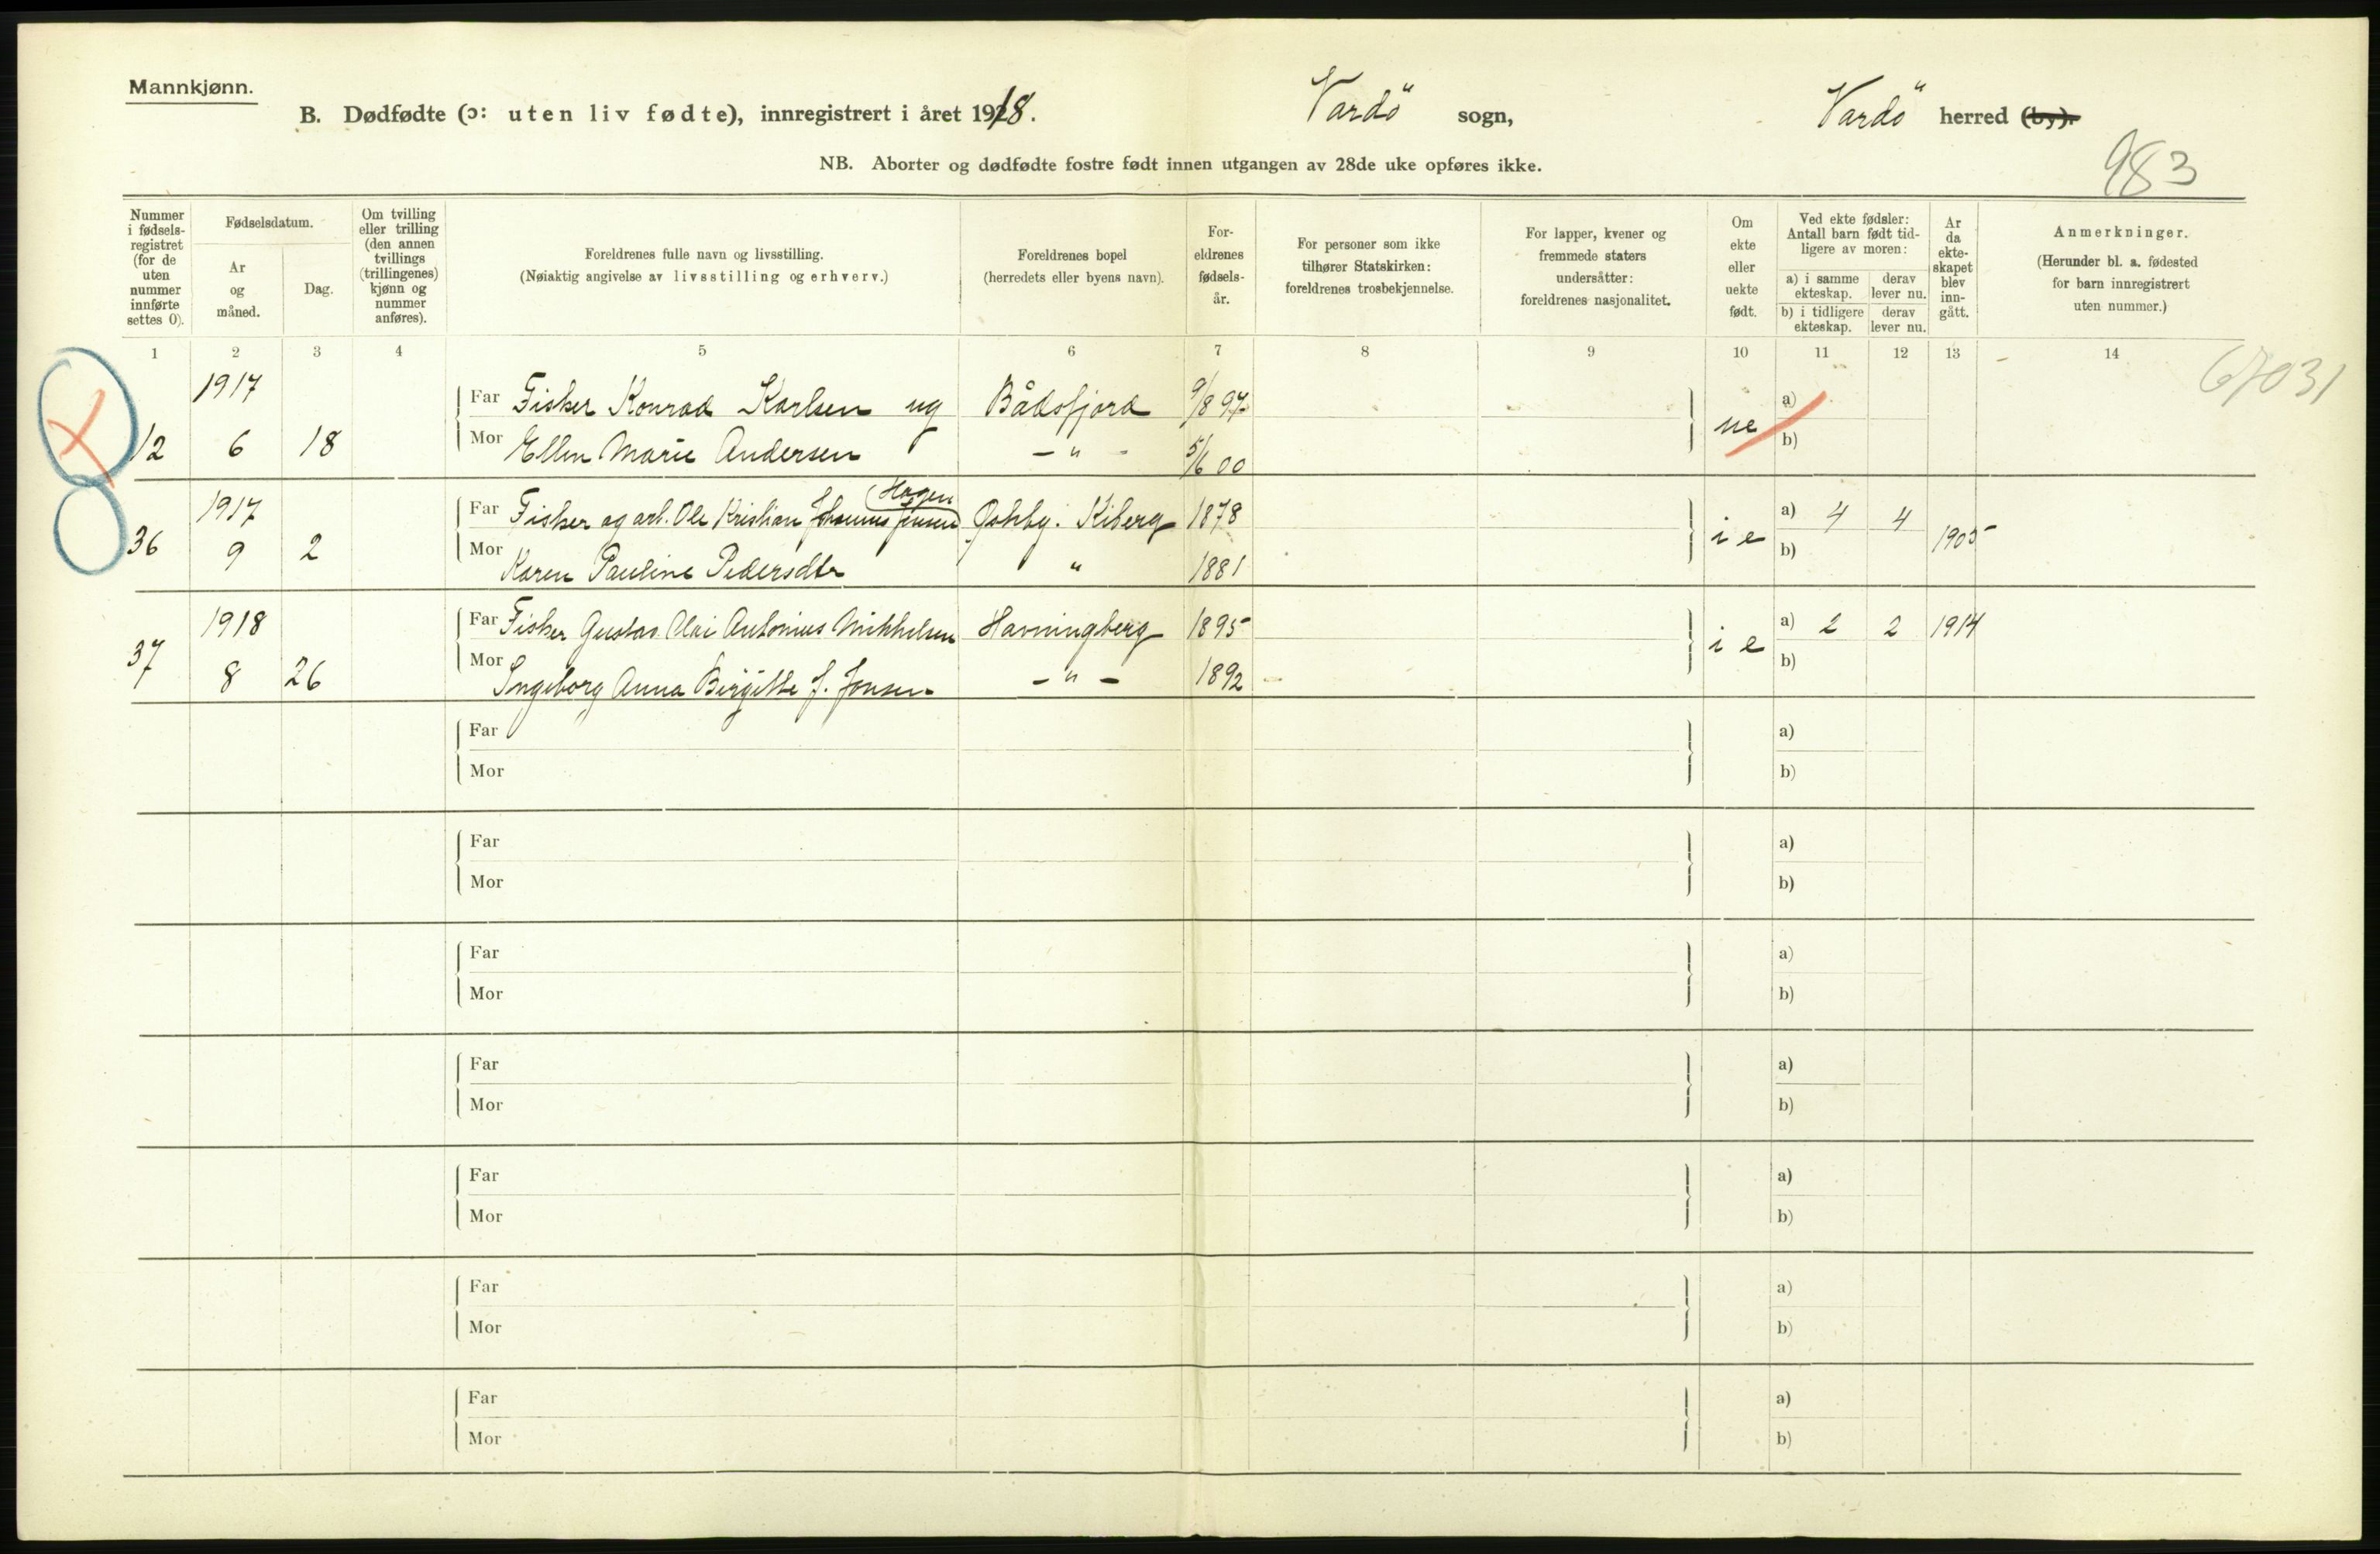 Mannkjønn.
B. Dødfødte (ɔ: uten liv fødte), innregistrert i året 1918. Vardö sogn, Vardö herred (by).
983
NB. Aborter og dødfødte fostre født innen utgangen av 28de uke opføres ikke.
Nummer i fødsels-registret (for de uten nummer innførte settes 0).
Fødselsdatum.
Ar og måned.
Dag.
Om tvilling eller trilling (den annen tvillings (trillingenes) kjønn og nummer anføres).
Foreldrenes fulle navn og livsstilling.
(Nøiaktig angivelse av livsstilling og erhverv.)
Foreldrenes bopel
(herredets eller byens navn).
For-eldrenes fødsels-år.
For personer som ikke tilhører Statskirken: foreldrenes trosbekjennelse.
For lapper, kvener og fremmede staters undersåtter: foreldrenes nasjonalitet.
Om ekte eller uekte født.
Ved ekte fødsler: Antall barn født tid-ligere av moren:
a) i samme ekteskap. derav lever nu.
b) i tidligere ekteskap. derav lever nu.
Ar da ekte-skapet blev inn-gått.
Anmerkninger.
(Herunder bl. a. fødested for barn innregistrert uten nummer.)
1 2 3 4 5 6 7 8 9 10 11 12 13 14
67031
1917 Far Fisker Konrad Karlsen ug Bådsfjord 9/8 97 a)
12 6 18 Mor Ellen Marie Andersen - " - 5/6 00 ue b)
Hagen
1917 Far Fisker og arb. Ole Kristian Johannes Jensen Østby. Kiberg 1878 a) 4 4
36 9 2 Mor Karen Pauline Pedersdtr " 1881 i e b) 1905
1918 Far Fisker Gustav Olai Antonius Mikkelsen Havningberg 1895 a) 2 2 1914
37 8 26 Mor Ingeborg Anna Birgitte J. Jonsen - " - 1892 i e b)
Far a)
Mor b)
Far a)
Mor b)
Far a)
Mor b)
Far a)
Mor b)
Far a)
Mor b)
Far a)
Mor b)
Far a)
Mor b)